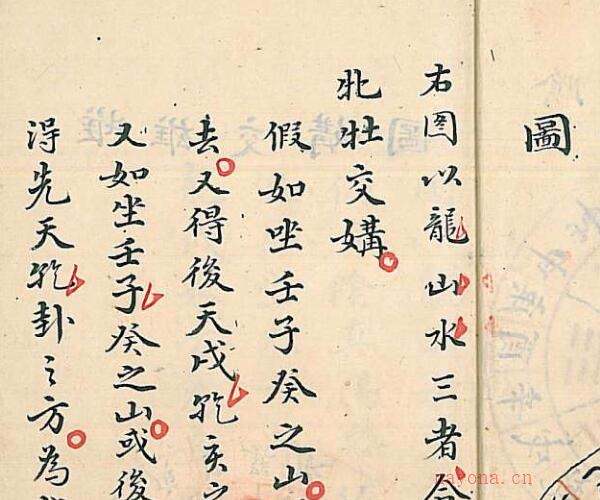 圖
右图以龍山水三者合
牝牡交媾
假如坐壬子癸之山
去又得後天戌乾亥之
又如坐壬子癸之山或後
得先天乾卦之方為
nayona.cn